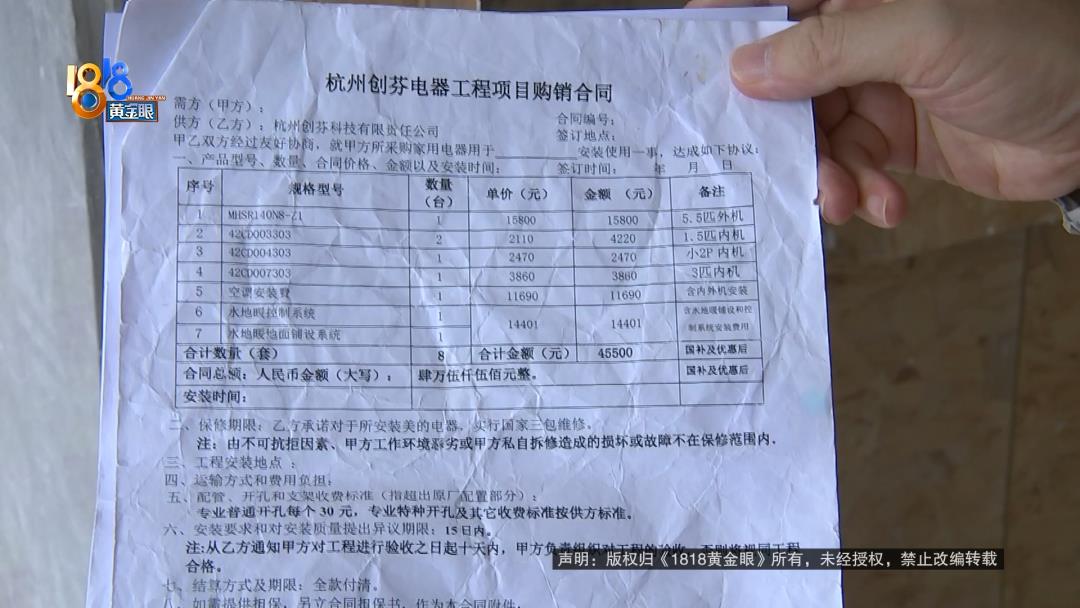 1818
HUANG JIN YAN
黄金眼
杭州创芬电器工程项目购销合同
需方（甲方）：
合同编号：
供方（乙方）：杭州创芬科技有限责任公司
签订地点：
甲乙双方经过友好协商，就甲方所采购家用电器用于__________安装使用一事，达成如下协议：
一、产品型号、数量、合同价格、金额以及安装时间： 签订时间： 年 月 日
序号 规格型号 数量（台） 单价（元） 金额（元） 备注
1 MHSR140N8-Z1 1 15800 15800 5.5匹外机
2 42CD003303 2 2110 4220 1.5匹内机
3 42CD004303 1 2470 2470 小2P内机
4 42CD007303 1 3860 3860 3匹内机
5 空调安装费 1 11690 11690 含内外机安装
6 水地暖控制系统 1 14401 14401 含水地暖铺设和控制系统安装费用
7 水地暖地面铺设系统 1
合计数量（套） 8 合计金额（元） 45500 国补及优惠后
合同总额：人民币金额（大写）： 肆万伍仟伍佰元整。 国补及优惠后
安装时间：
二、保修期限：乙方承诺对于所安装美的电器，实行国家三包维修。
注：由不可抗拒因素、甲方工作环境恶劣或甲方私自拆修造成的损坏或故障不在保修范围内．
三、工程安装地点：
四、运输方式和费用负担：
五、配管、开孔和支架收费标准（指超出原厂配置部分）：
专业普通开孔每个 30 元，专业特种开孔及其它收费标准按供方标准。
六、安装要求和对安装质量提出异议期限：15日内。
注:从乙方通知甲方对工程进行验收之日起十天内，甲方负责组织对工程的验收，否则将视同工程
合格。
七、结算方式及期限：全款付清。
八、如需提供担保，另立合同担保书，作为本合同附件．
声明：版权归《1818黄金眼》所有，未经授权，禁止改编转载